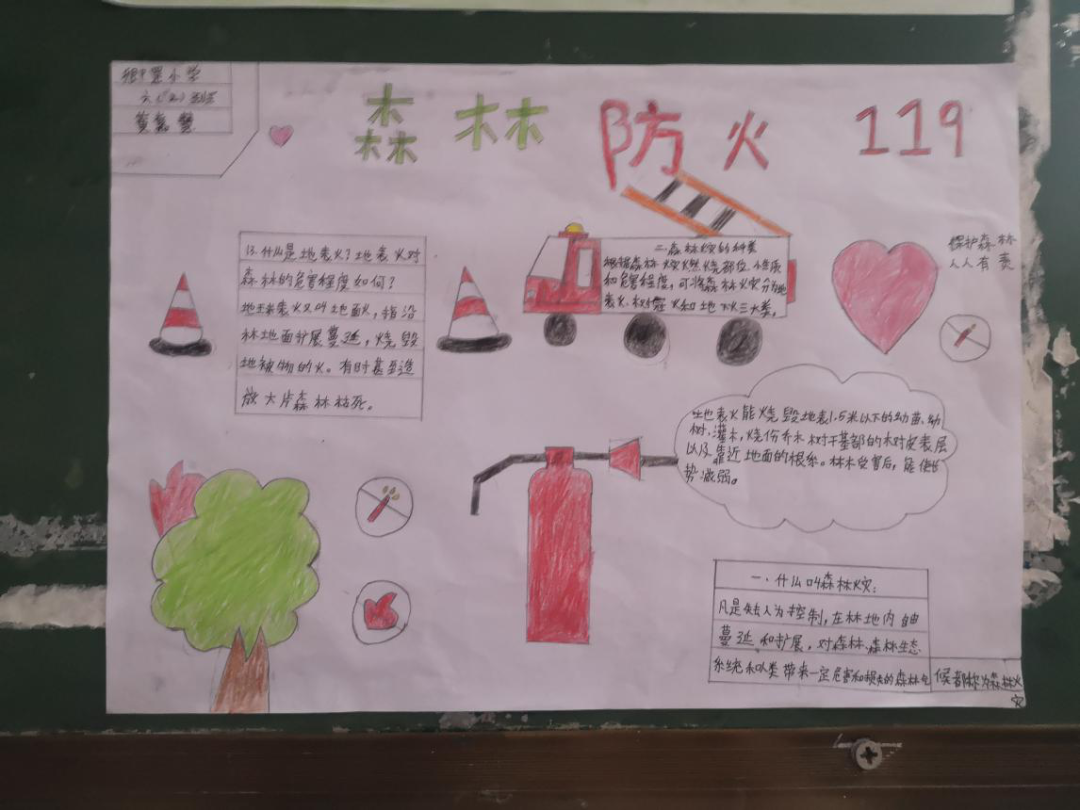 小学
六(2)班
森 林 防 火 119
保护森林
人人有责
什么是地表火?地表火对
森林的危害程度如何?
地表火又叫地面火,指沿
林地面扩展蔓延,烧毁
地被物的火。有时甚至造
放大片森林枯死。
二、森林火灾的种类
根据森林火灾燃烧部位、性质
和危害程度,可将森林火灾分为地
表火、树冠火和地下火三大类。
地表火能烧毁地表1.5米以下的幼苗、幼
树、灌木,烧伤乔木树干基部的树皮表层
以及靠近地面的根系。林木受害后,
势减弱。
一、什么叫森林火灾:
凡是失去人为控制,在林地内自由
蔓延和扩展,对森林、森林生态
系统和人类带来一定危害和损失的森林
候都称为森林火
灾